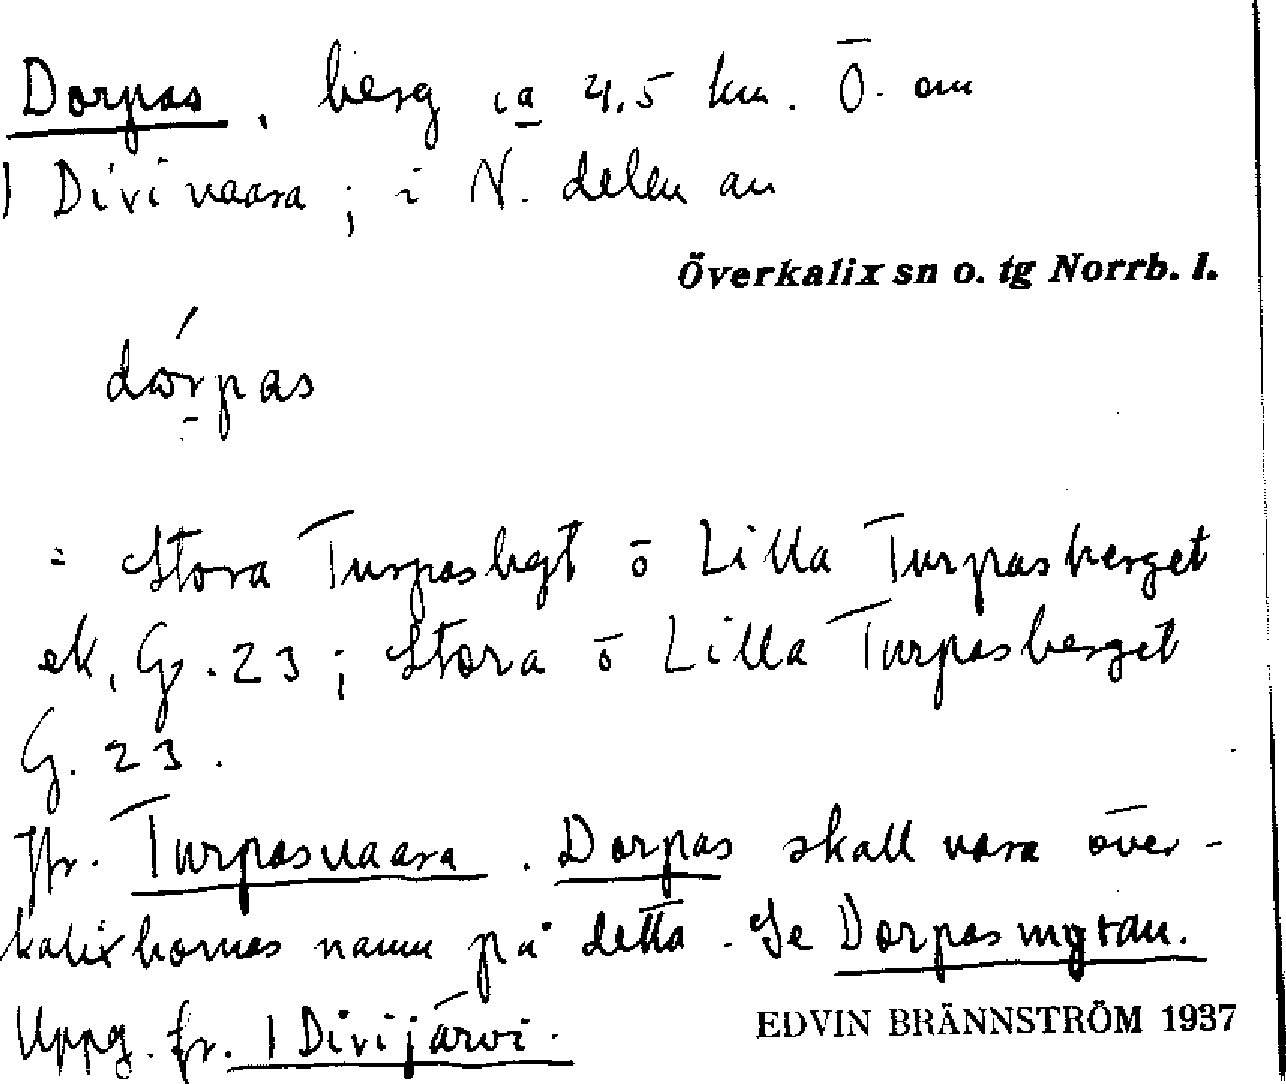 Dorpas, berg ca 4,5 km. Ö. om
1 Divivaara; i N. delen av
Överkalix sn o. tg Norrb. l.
dórpas
= Stora Turpasbgt o Lilla Turpasberget
ek. G. 23; Stora o Lilla Turpasberget
G. 23.
Jfr. Turpasvaara. Dorpas skall vara över-
kalixbornas namn på detta. Se Dorpasmyran.
Uppg. fr. 1 Divijärvi.
EDVIN BRÄNNSTRÖM 1937